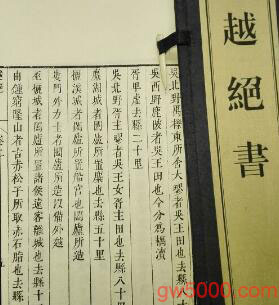 越絕書
吳北野禺櫟東所舍大疁者吳王田也去縣八
吳西野鹿陂者吳王田也今分為耦瀆
胥卑虛去縣二十里
吳北野胥主疁者吳王女胥主田也去縣八十里
麋湖城者闔廬所置麋也去縣五十里
欐溪城者闔廬所置船宮也闔廬所造
婁門外力士者闔廬所造以備外越
巫欐城者闔廬所置諸侯遠客離城也去縣十
由鍾窮隆山者古赤松子所取赤石脂也去縣
gw5000.com